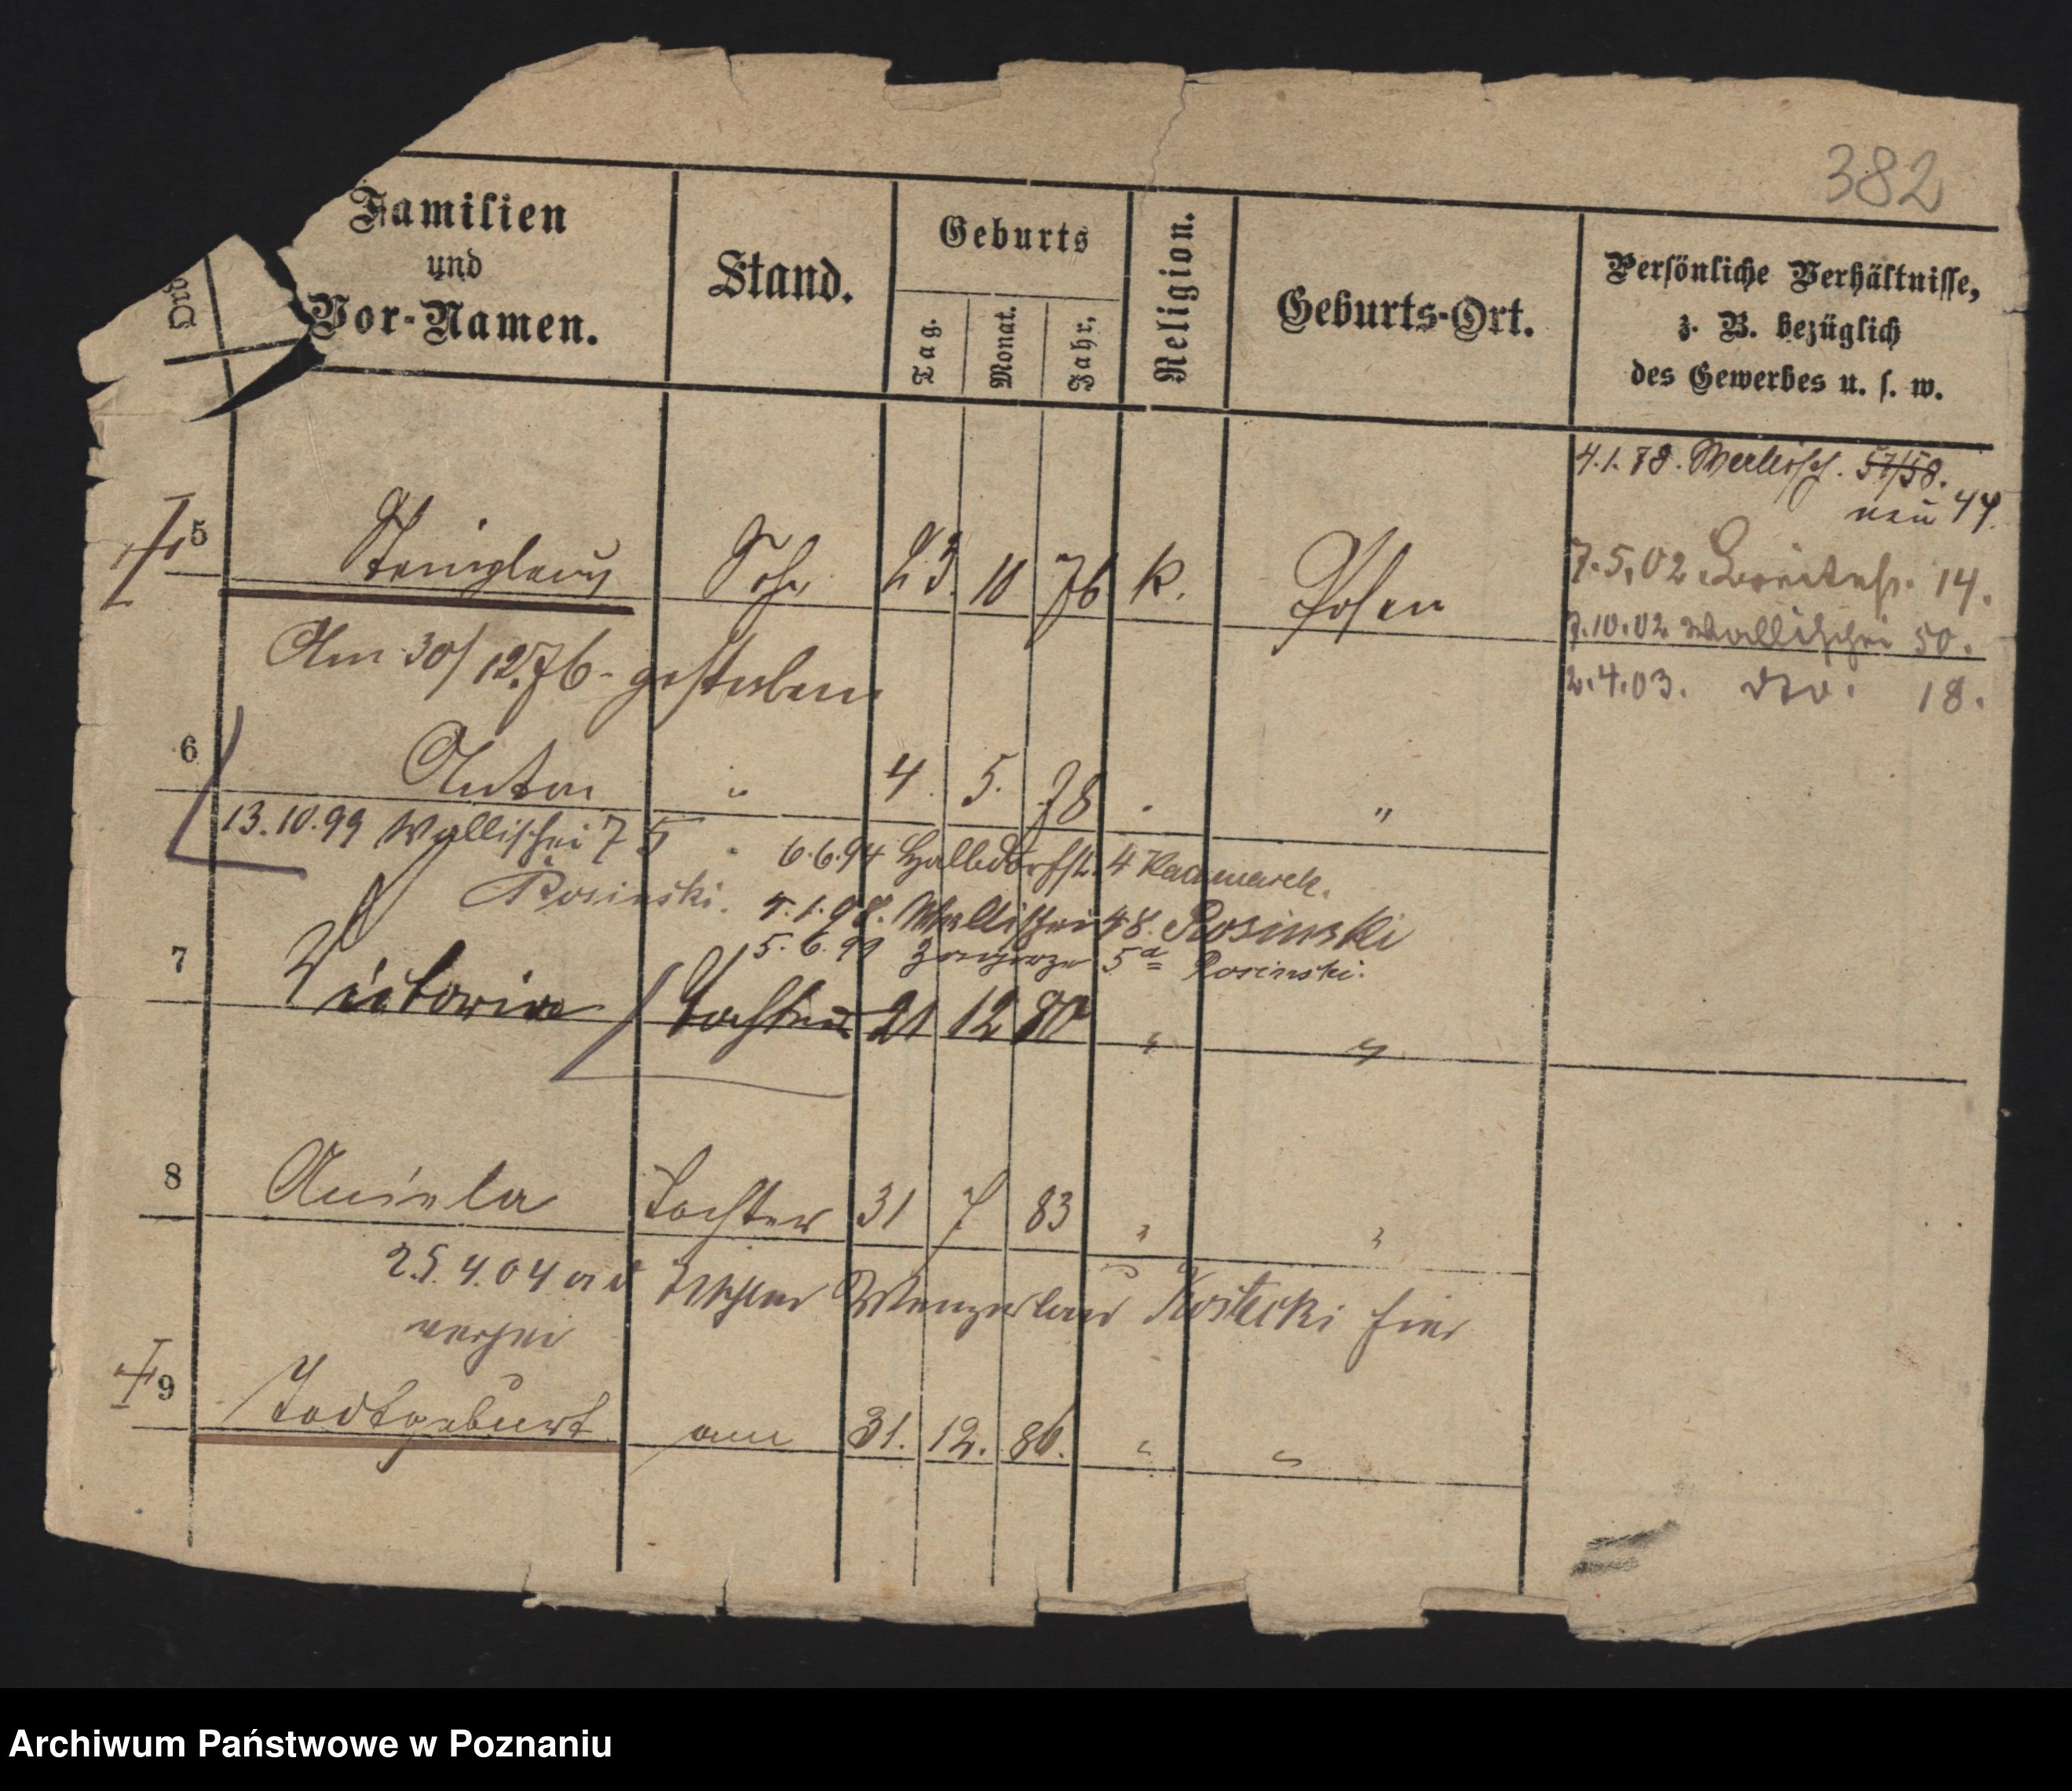 382
Familien
und
Vor-Namen.
Stand.
Geburts
Tag.
Monat.
Jahr.
Religion.
Geburts-Ort.
Persönliche Verhältnisse,
z. B. bezüglich
des Gewerbes u. s. w.
4.1.78. 57/58.
neu 44.
5 Stanislaus Sohn 23. 10 76 k. Posen
7.5.02 Breitestr. 14.
7.10.02 Wallischei 50.
2.4.03. dto. 18.
Am 30/12.76 gestorben
6 Anton " 4. 5. 78 " "
13.10.99 Wallischei 75
Rosinski.
6.6.94 Halbdorfstr. 4 Kaczmarek.
4.1.98. Wallischei 48. Rosinski
5.6.99 Zagorze 5a Rosinski.
7 Victoria Tochter 21 12 80 " "
8 Aniela Tochter 31 7 83 " "
25.4.04 Kostecki hier
9 Todtgeburt am 31. 12. 86. " "
Archiwum Państwowe w Poznaniu